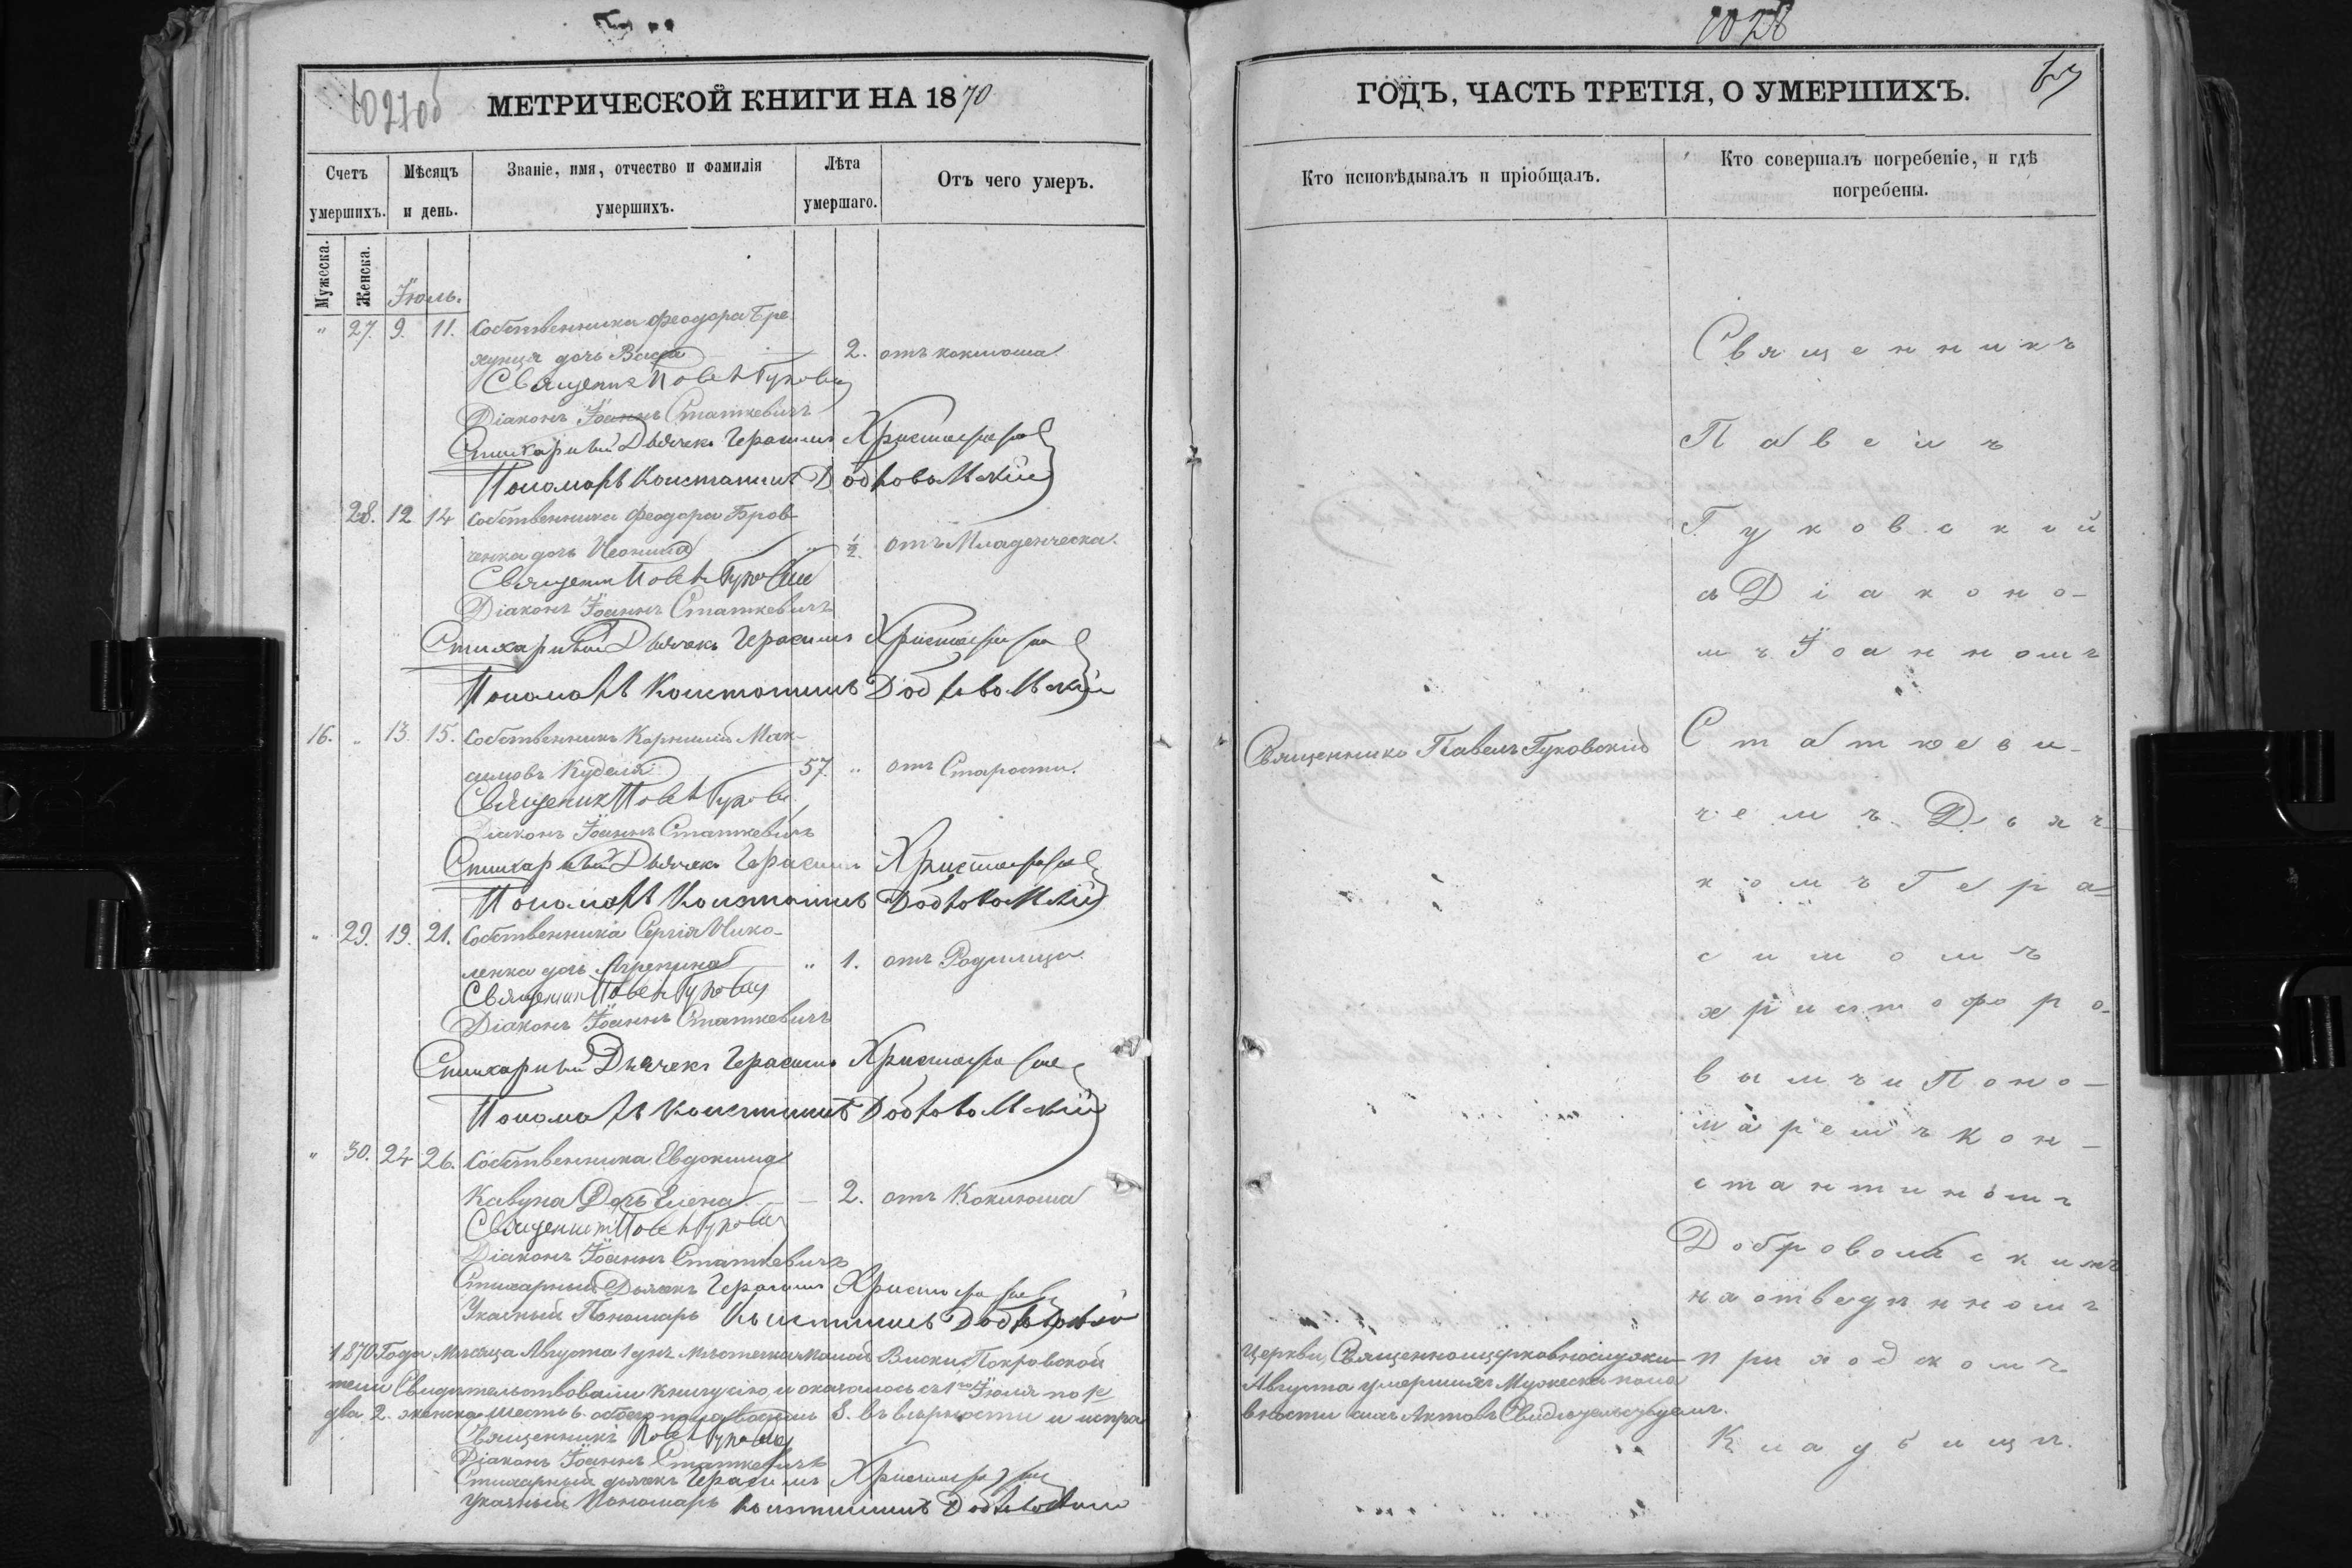 1027об
МЕТРИЧЕСКОЙ КНИГИ НА 1870
Счетъ умершихъ.
Мѣсяцъ и день.
Званіе, имя, отчество и фамилія умершихъ.
Лѣта умершаго.
Отъ чего умеръ.
Мужеска.
Женска.
Іюль.
" 27. 9. 11. Собственника Феодора Бре-
хунца дочь Васса 2. отъ коклюша
Священикъ Павелъ Гуковскій
Діаконъ Іоаннъ Статкевичъ
Стихарный Дьячекъ Герасимъ Христофоровъ
Пономарь Константинъ Добровольскій
28. 12 14 Собственника Феодора Бров-
ченка дочь Неонила " ½. отъ Младенческа.
Священикъ Павелъ Гуковскій
Діаконъ Іоаннъ Статкевичъ
Стихарный Дьячекъ Герасимъ Христофоровъ
Пономарь Константинъ Добровольскій
16. " 13. 15. Собственникъ Корнилій Мак-
симовъ Куделя 57. " отъ Старости.
Священикъ Павелъ Гуковскій
Діаконъ Іоаннъ Статкевичъ
Стихарный Дьячекъ Герасимъ Христофоровъ
Пономарь Константинъ Добровольскій
" 29. 19. 21. Собственника Сергія Нико-
ленка дочь Агрепина " 1. отъ Родилица.
Священикъ Павелъ Гуковскій
Діаконъ Іоаннъ Статкевичъ
Стихарный Дьячекъ Герасимъ Христофоровъ
Пономарь Константинъ Добровольскій
" 30. 24 26. Собственника Евдокима
Кавуна Дочь Елена 2. отъ Коклюша
Священикъ Павелъ Гуковскій
Діаконъ Іоаннъ Статкевичъ
Стихарный Дьячекъ Герасимъ Христофоровъ
Указный Пономарь Константинъ Добровольскій
1870 Года Мѣсяца Августа 1 дня мѣстечка Малой Виски Покровской
тели Свидѣтельствовали книгу сію и оказалось съ 1го Іюля по 1е
два 2. женска шесть 6. обоего пола восемь 8. въ вѣрности и испра
Священникъ Павелъ Гуковскій
Діаконъ Іоаннъ Статкевичъ
Стихарный дьячекъ Герасимъ Христофоровъ
Указный Пономарь Константинъ Добровольскій
1028
ГОДЪ, ЧАСТЬ ТРЕТІЯ, О УМЕРШИХЪ.
Кто исповѣдывалъ и пріобщалъ.
Кто совершалъ погребеніе, и гдѣ погребены.
Священникъ Павелъ Гуковскій
Церкви, Священноцерковнослужи-
Августа умершихъ Мужеска пола
вности симъ Актовъ Свидѣтельствуемъ.
Священникъ
Павелъ
Гуковскій
съ Діаконо-
мъ Іоанномъ
Статкеви-
чемъ Дьяч-
комъ Гера-
симомъ
христофоро-
вымъ и Поно-
маремъ Кон-
стантиномъ
Добровольскимъ
на отведенномъ
приходскомъ
Кладбищѣ.